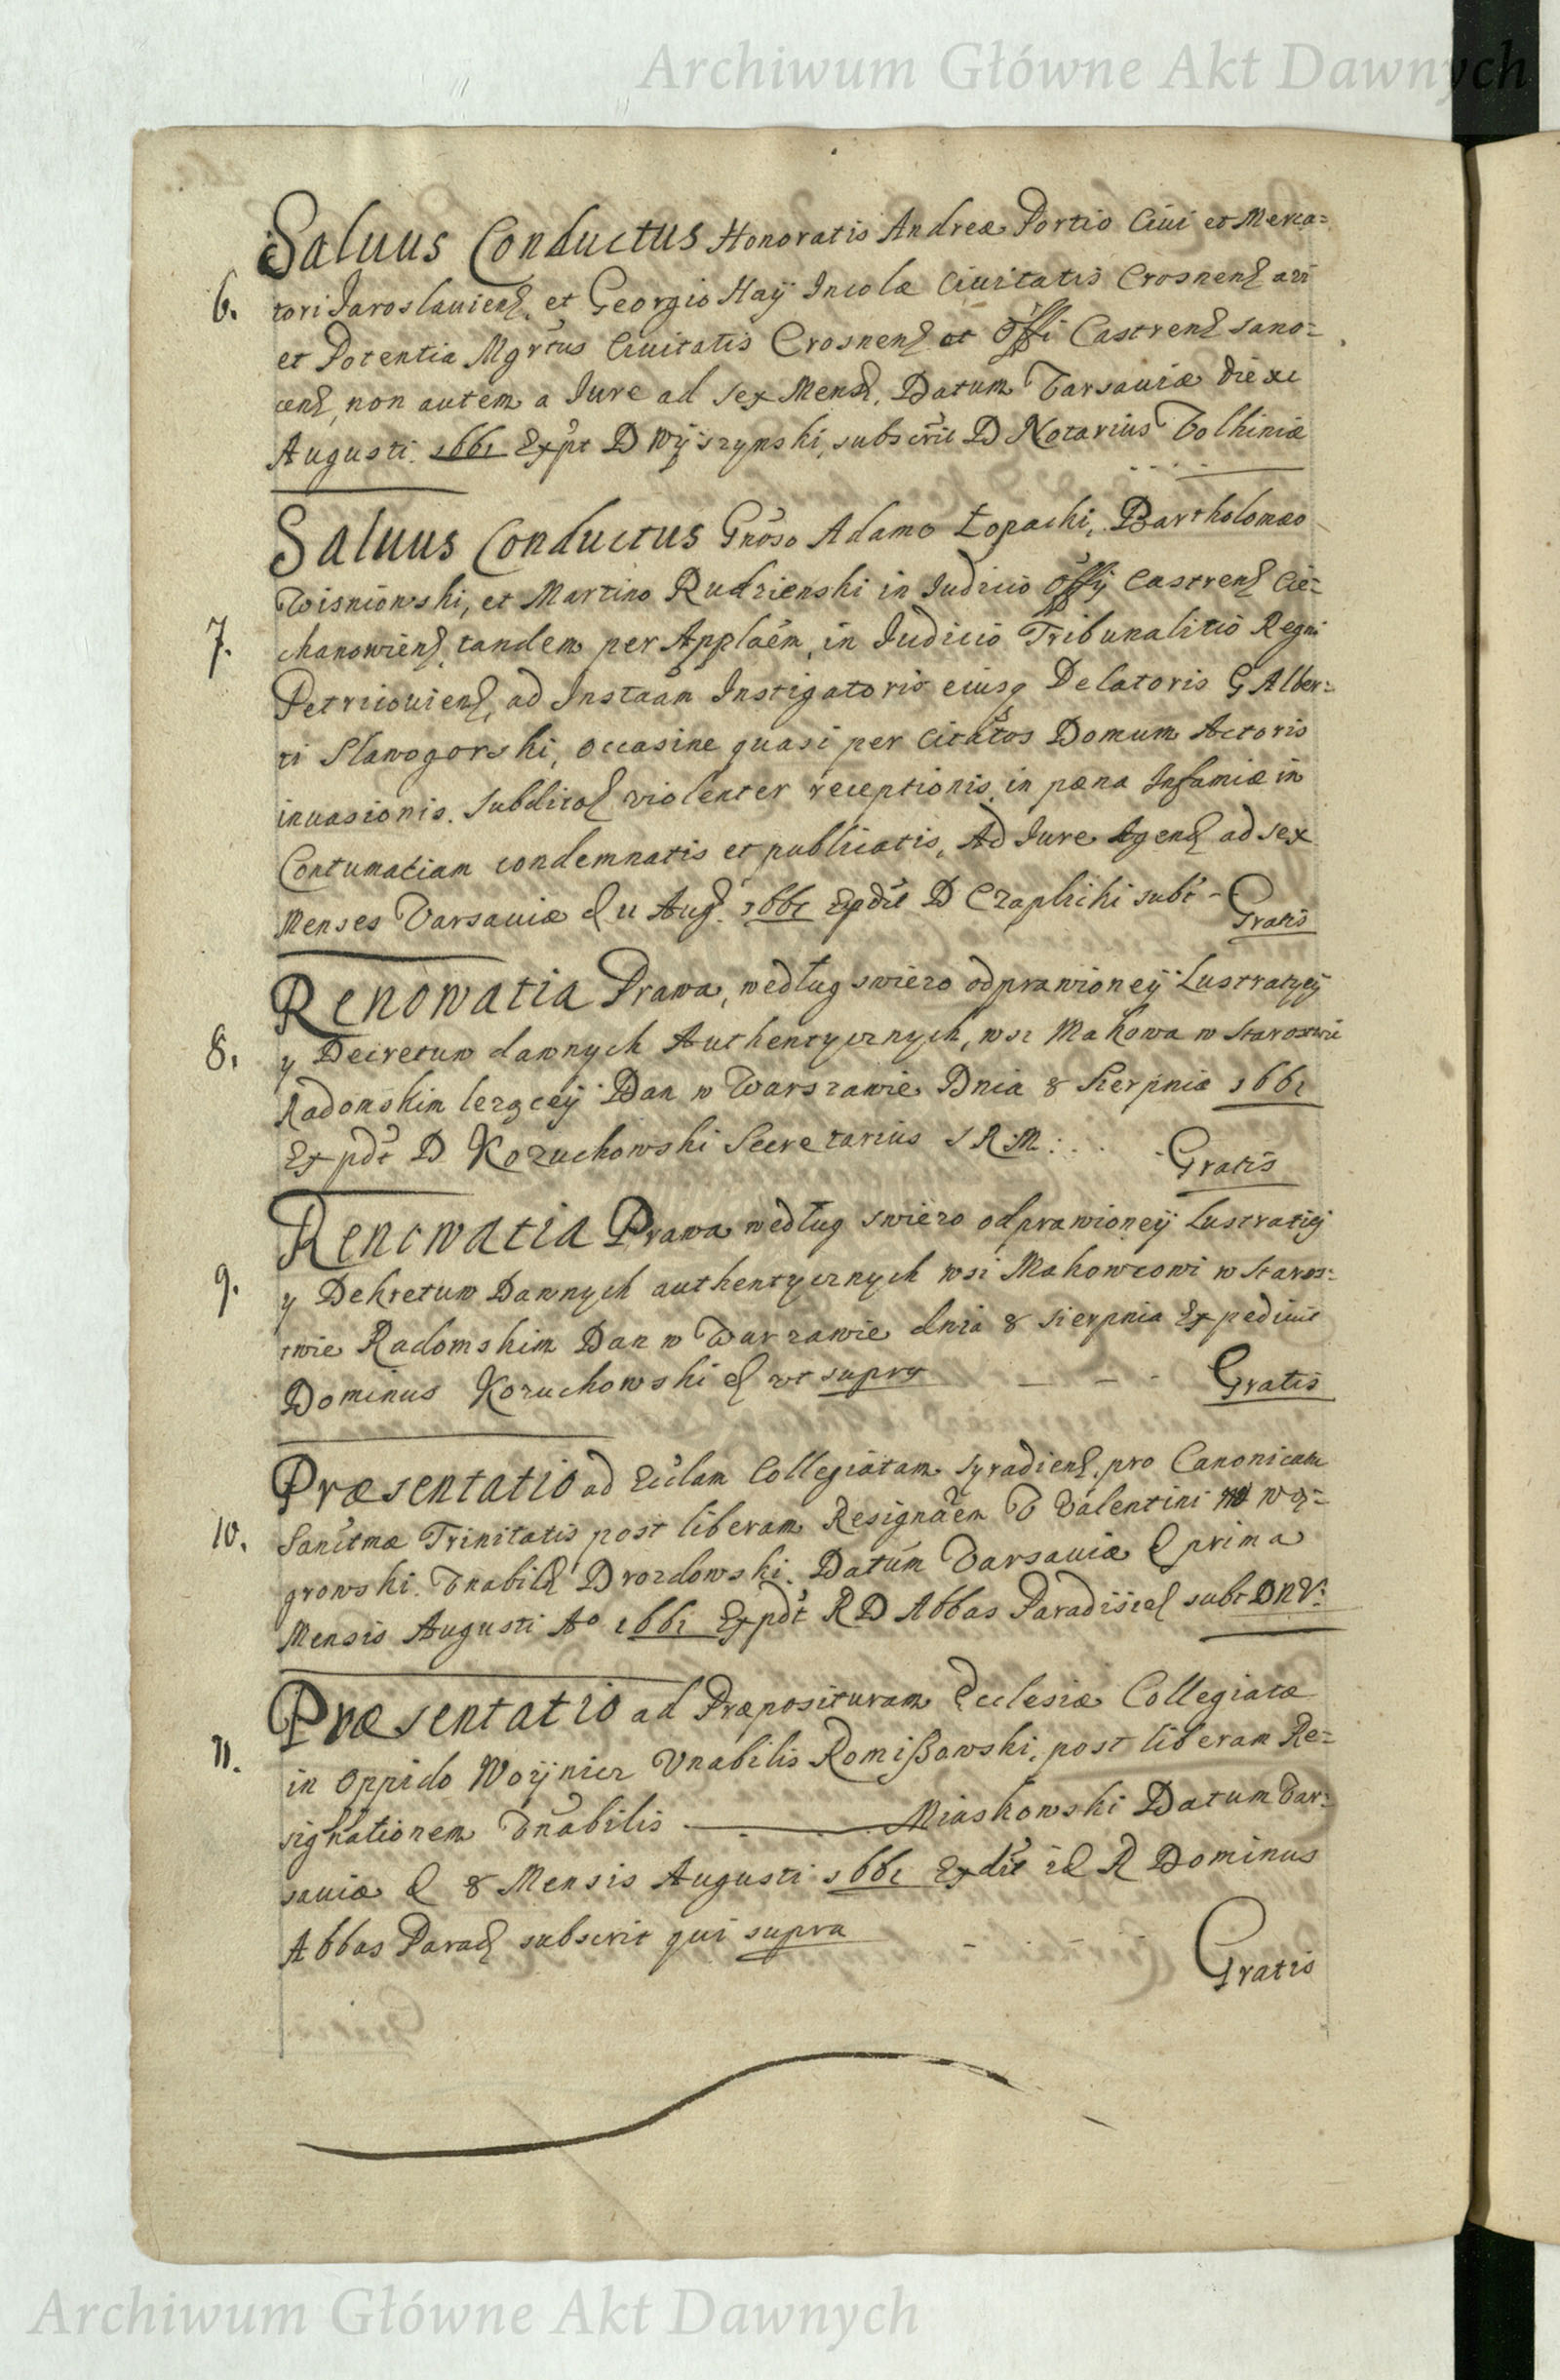 Archiwum Główne Akt Dawnych
Saluus Conductus Honoratis Andreæ Portio Ciui et Merca=
6. tori Jaroslauien. et Georgio Haÿ Incolæ Ciuitatis Crosnen
et Potentia Mgrtus Ciuitatis Crosnen et Offi Castren Sano=
cen, non autem a Jure ad sex Mens. Datum Varsauiæ die xi
Augusti 1661 Exptt D Wÿszynski, subscrit D Notarius Volhiniæ
Saluus Conductus Gnoso Adamo Łopachi, Bartholomæo
Wisniowski, et Martino Rudzienski in Judicio Offÿ Castren Cie=
7. chanowien, tandem per Applaem, in Judicio Tribunalitio Regni
Petricouien, ad Instaam Instigatoris eiusq Delatoris G Alber=
ti Slawogorski, occasine quasi per Citatos Domum Actoris
inuasionis. Subditor violenter receptionis in pæna Infamiæ in
Contumatiam condemnatis et publicatis, Ad Jure Agen ad sex
Menses Varsauiæ d 11 Aug. 1661 Expdit D Czaplicki subt -
Gratis
Renowatia Prawa, według swiezo odprawioneÿ Lustratÿeÿ
8. y Decretuw dawnych Authentycznych, wsi Makowa w Starostwie
Radomskim lezaceÿ Dan w Warszawie Dnia 8 Sierpnia 1661
Expdt D Kozuchowski Secretarius S R M: . . - Gratis
Renowatia Prawa według swiezo odprawioneÿ Lustratiÿ
9. y Dekretuw Dawnych authentycznych wsi Makowcowi w Staros=
twie Radomskim Dan w Warzawie dnia 8 sierpnia Expediuit
Dominus Kozuchowski d vt supra - - - Gratis
Præsentatio ad Ecclam Collegiatam Syradien. pro Canonicatu
10. Sanctmæ Trinitatis post liberam Resignaem V Valentini Wę=
growski. Vnabili Drozdowski. Datum Varsauiæ d prima
Mensis Augusti Ao 1661 Expdt R D Abbas Paradisien subt DNV:
Præsentatio ad Præposituram Ecclesiæ Collegiatæ
11. in Oppido Woÿnicz Vnabilis Romißowski, post liberam Re=
signationem Vnabilis ——— Miaskowski Datum Var=
sauiæ d 8 Mensis Augusti 1661 Expdit id R Dominus
Abbas Parad subscrit qui supra
Gratis
Archiwum Główne Akt Dawnych